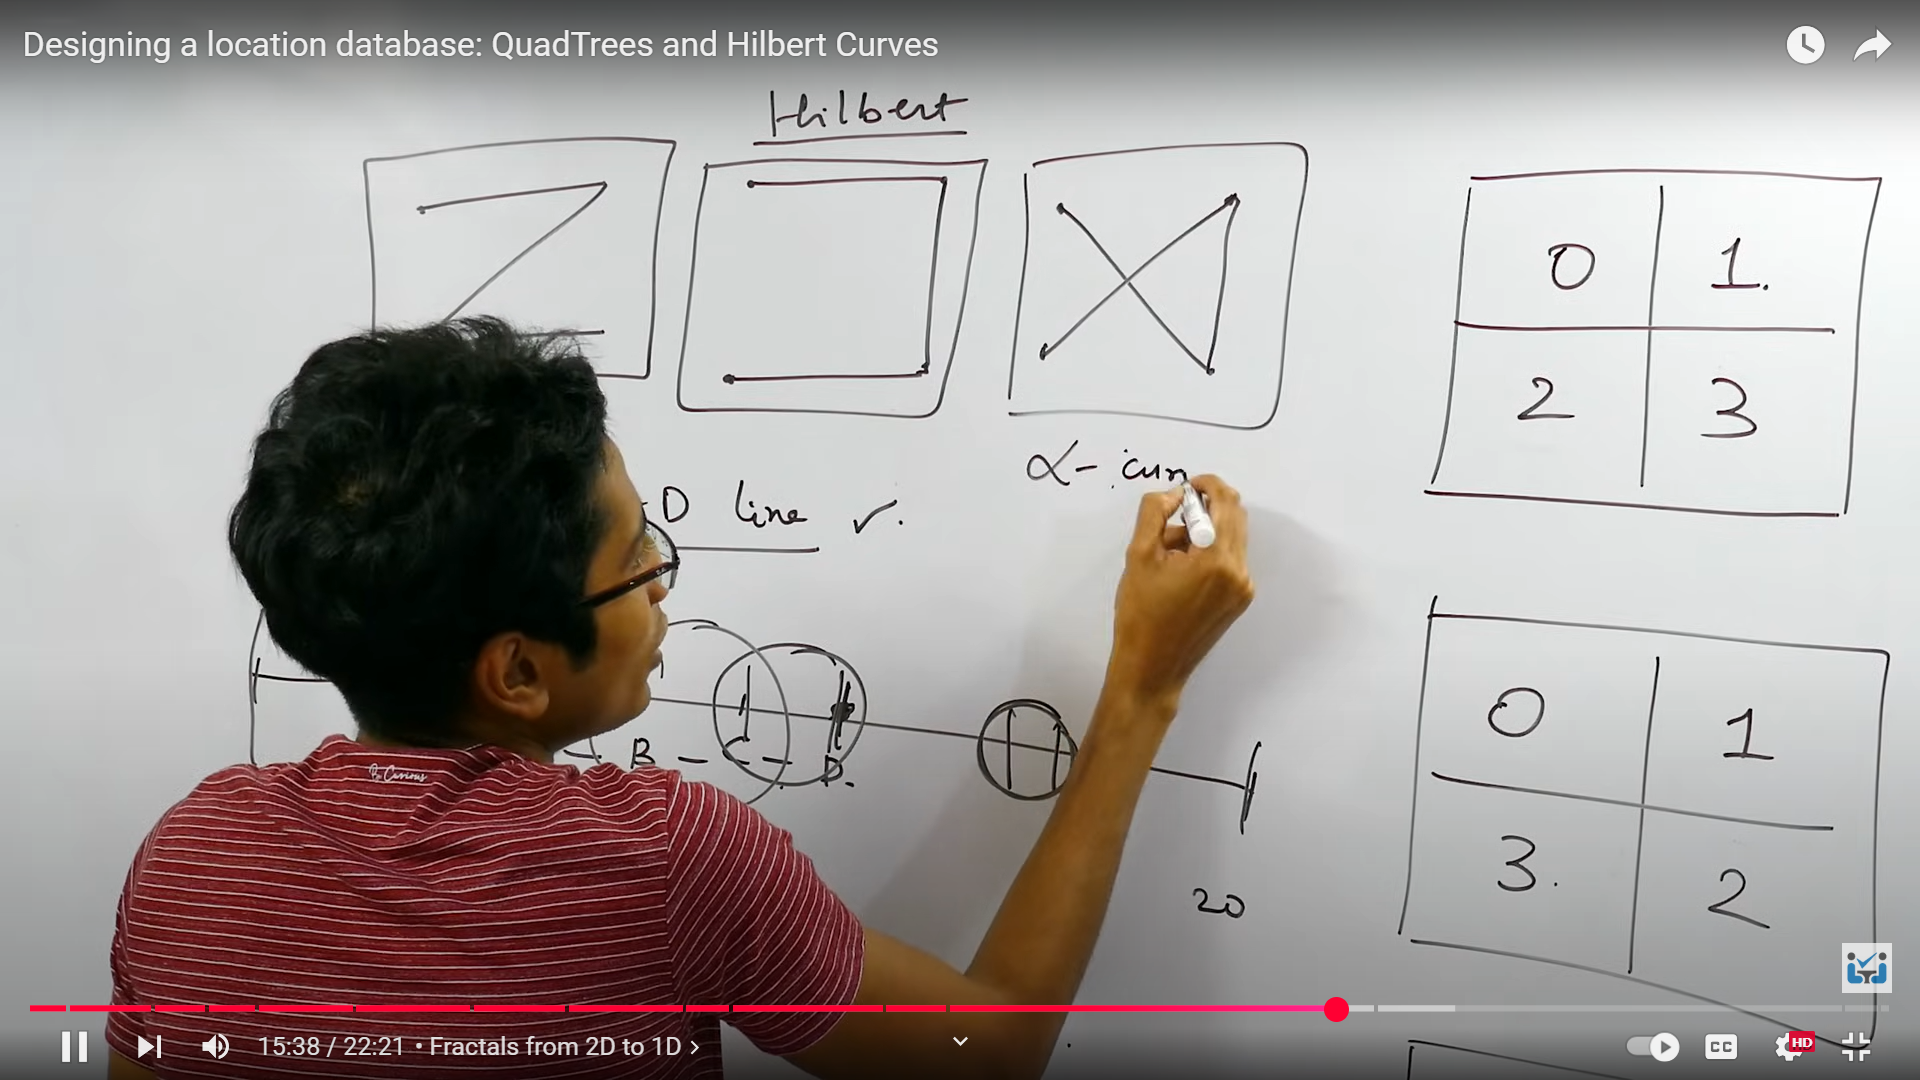 Designing a location database: QuadTrees and Hilbert Curves
Hilbert
0 1.
2 3
α- cur
D line ✓.
B - C - D.
0 1
3. 2
20
B Curious
15:38 / 22:21 • Fractals from 2D to 1D >
CC
HD